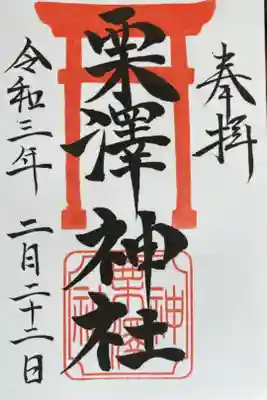 奉拝
栗澤神社
令和三年 二月二十二日
栗澤神社